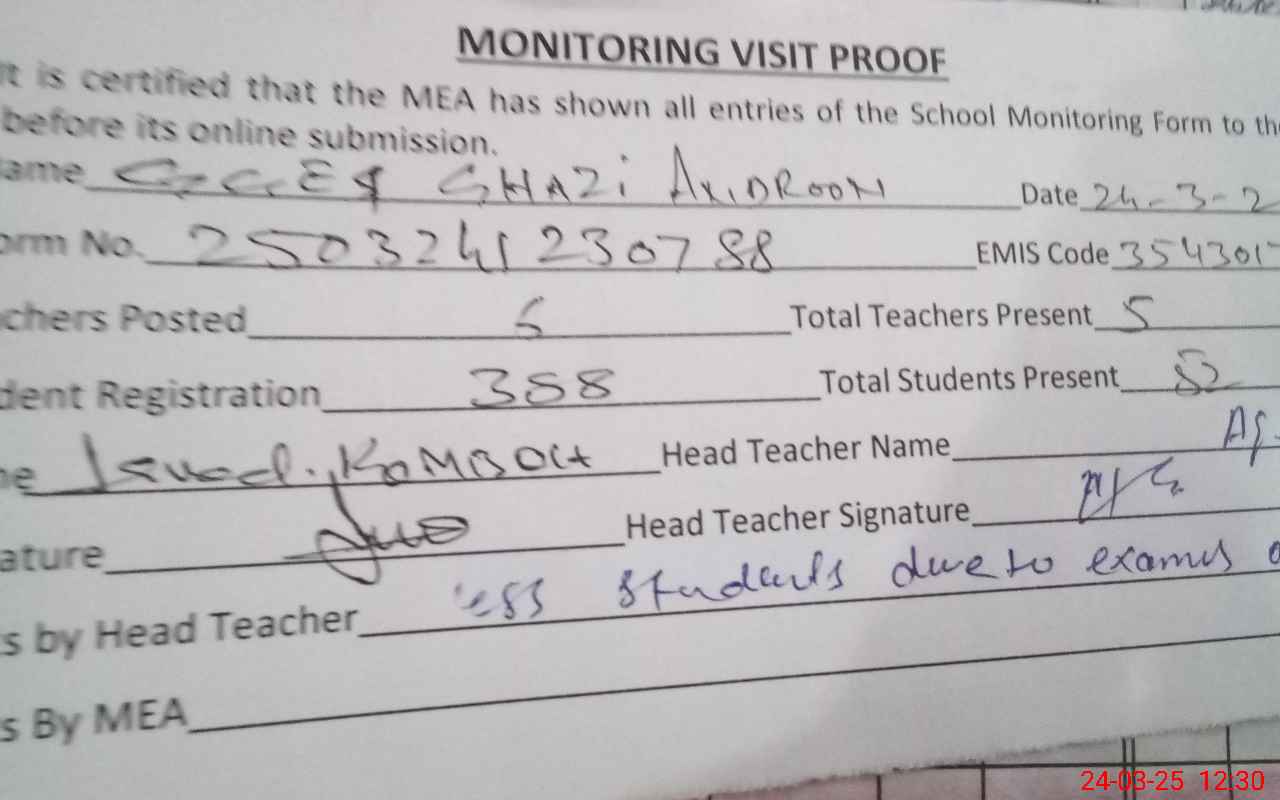 MONITORING VISIT PROOF
It is certified that the MEA has shown all entries of the School Monitoring Form to the
before its online submission.
ame GHAZi ANDROON Date 24-3-2
orm No. 25032412307 88 EMIS Code 354301
chers Posted 6 Total Teachers Present 5
dent Registration 388 Total Students Present 82
me Javed. KAMBOH Head Teacher Name
ature Head Teacher Signature
s by Head Teacher less students due to exams
s By MEA
24-03-25 12:30